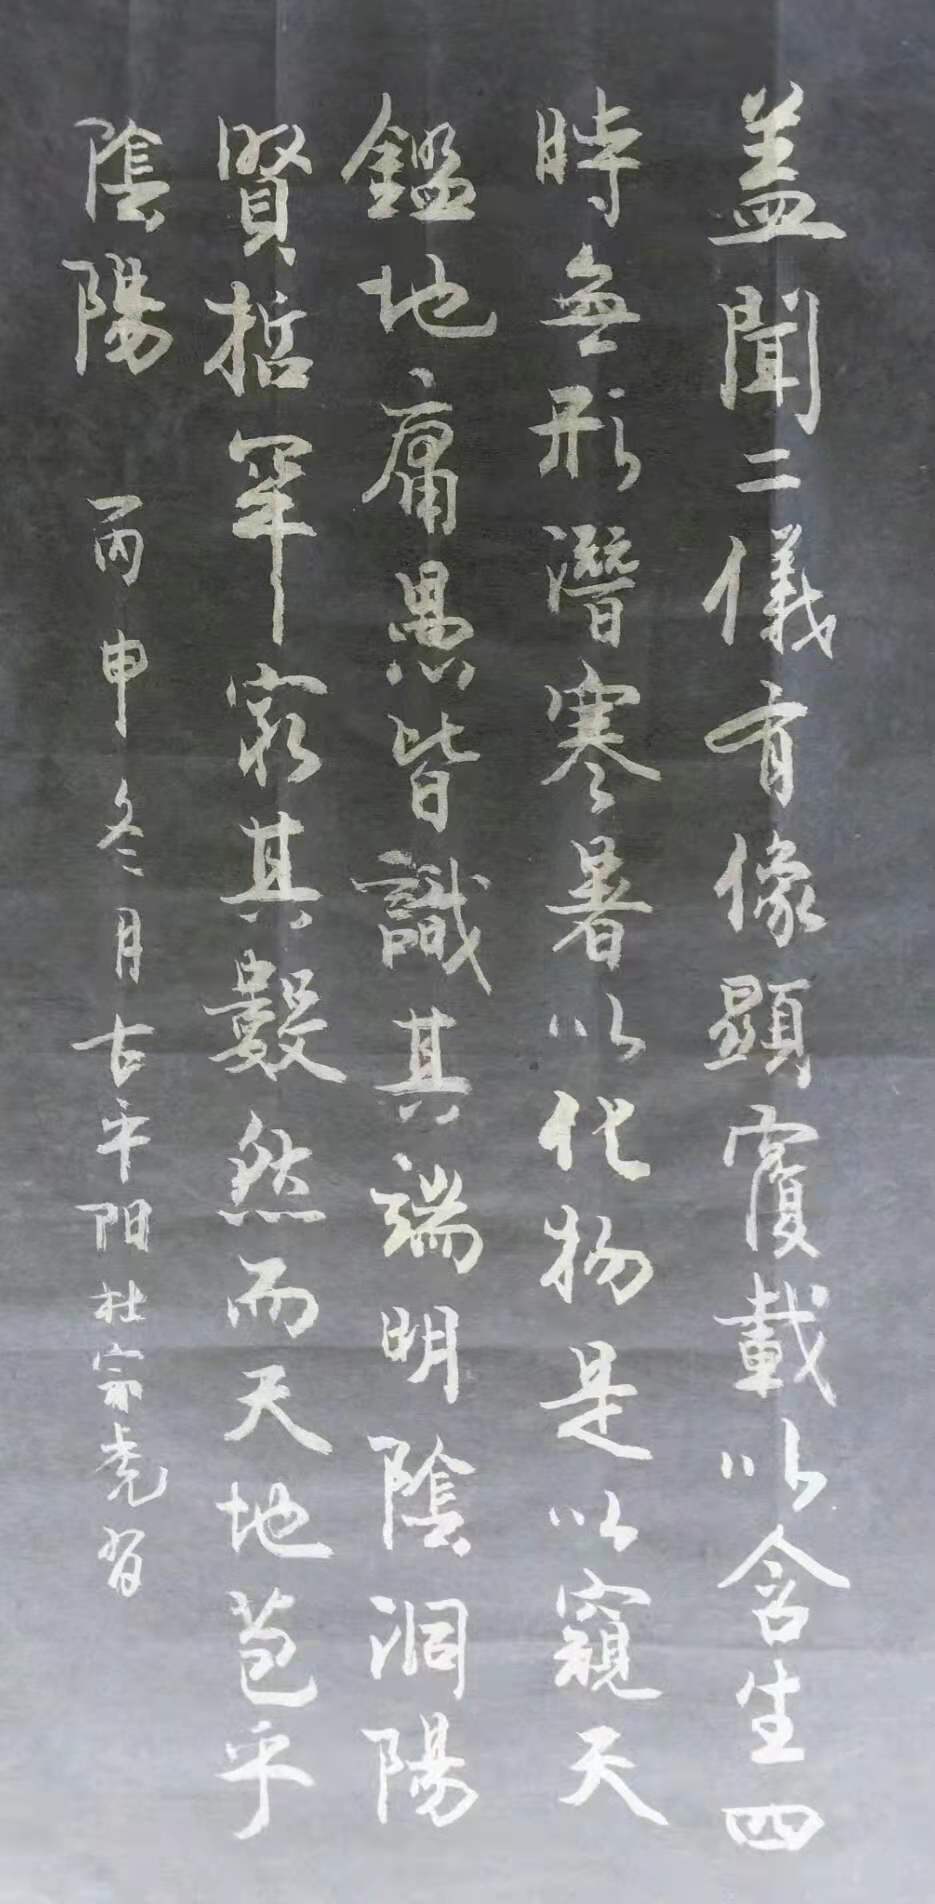 蓋聞二儀有像顯覆載以含生四
時無形潛寒暑以化物是以窺天
鑑地庸愚皆識其端明陰洞陽
賢哲罕窮其數然而天地苞乎
陰陽 丙申冬月古平阳杜宗尭習